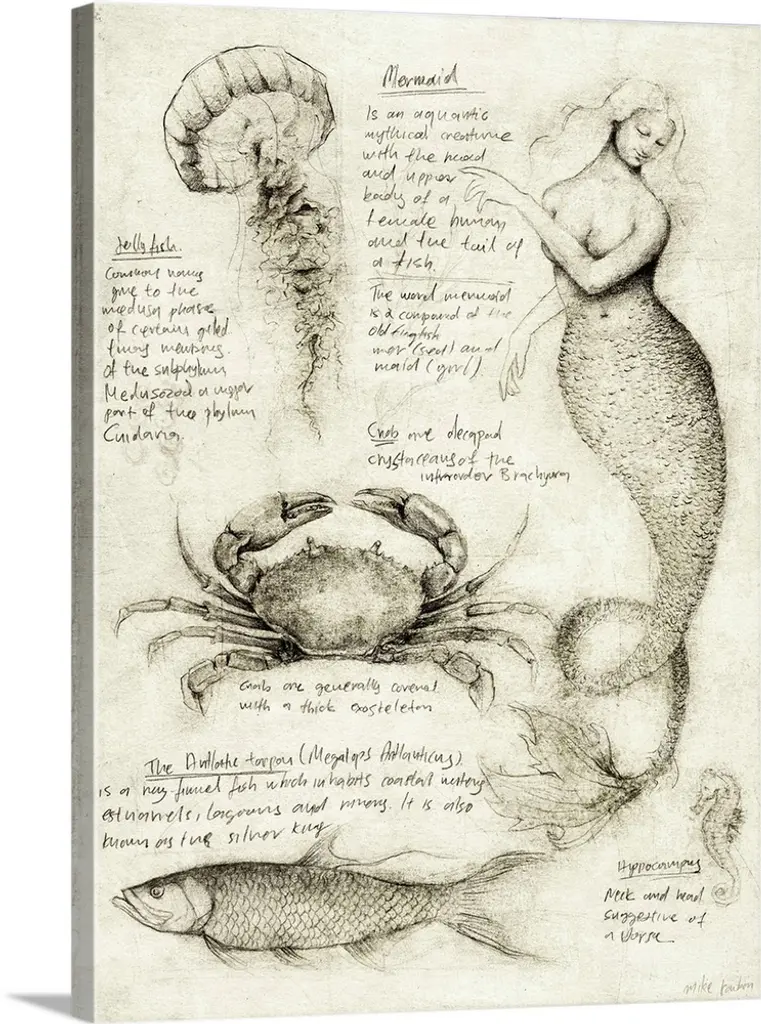 Mermaid
Is an aquantic
mythical creature
with the head
and upper
body of a
female human
and the tail of
a fish.
The word mermaid
is a compound of the
old english
mer (sea) and
maid (girl).
Jelly fish.
Common names
give to the
medusa phase
of certain
of the subphylum
Medusozoa a major
part of the phylum
Cnidaria.
Crab are decapod
crustaceans of the
infraorder Brachyura
Crab are generally covered
with a thick exoskeleton
The Atlantic tarpon (Megalops Atlanticus).
is a ray finned fish which inhabits coastal waters
lagoons and rivers. It is also
known as the silver king
Hippocampus
Neck and head
suggestive of
a Horse
mike